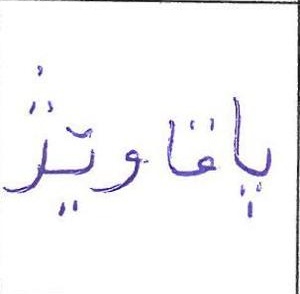 پاقاوێژ